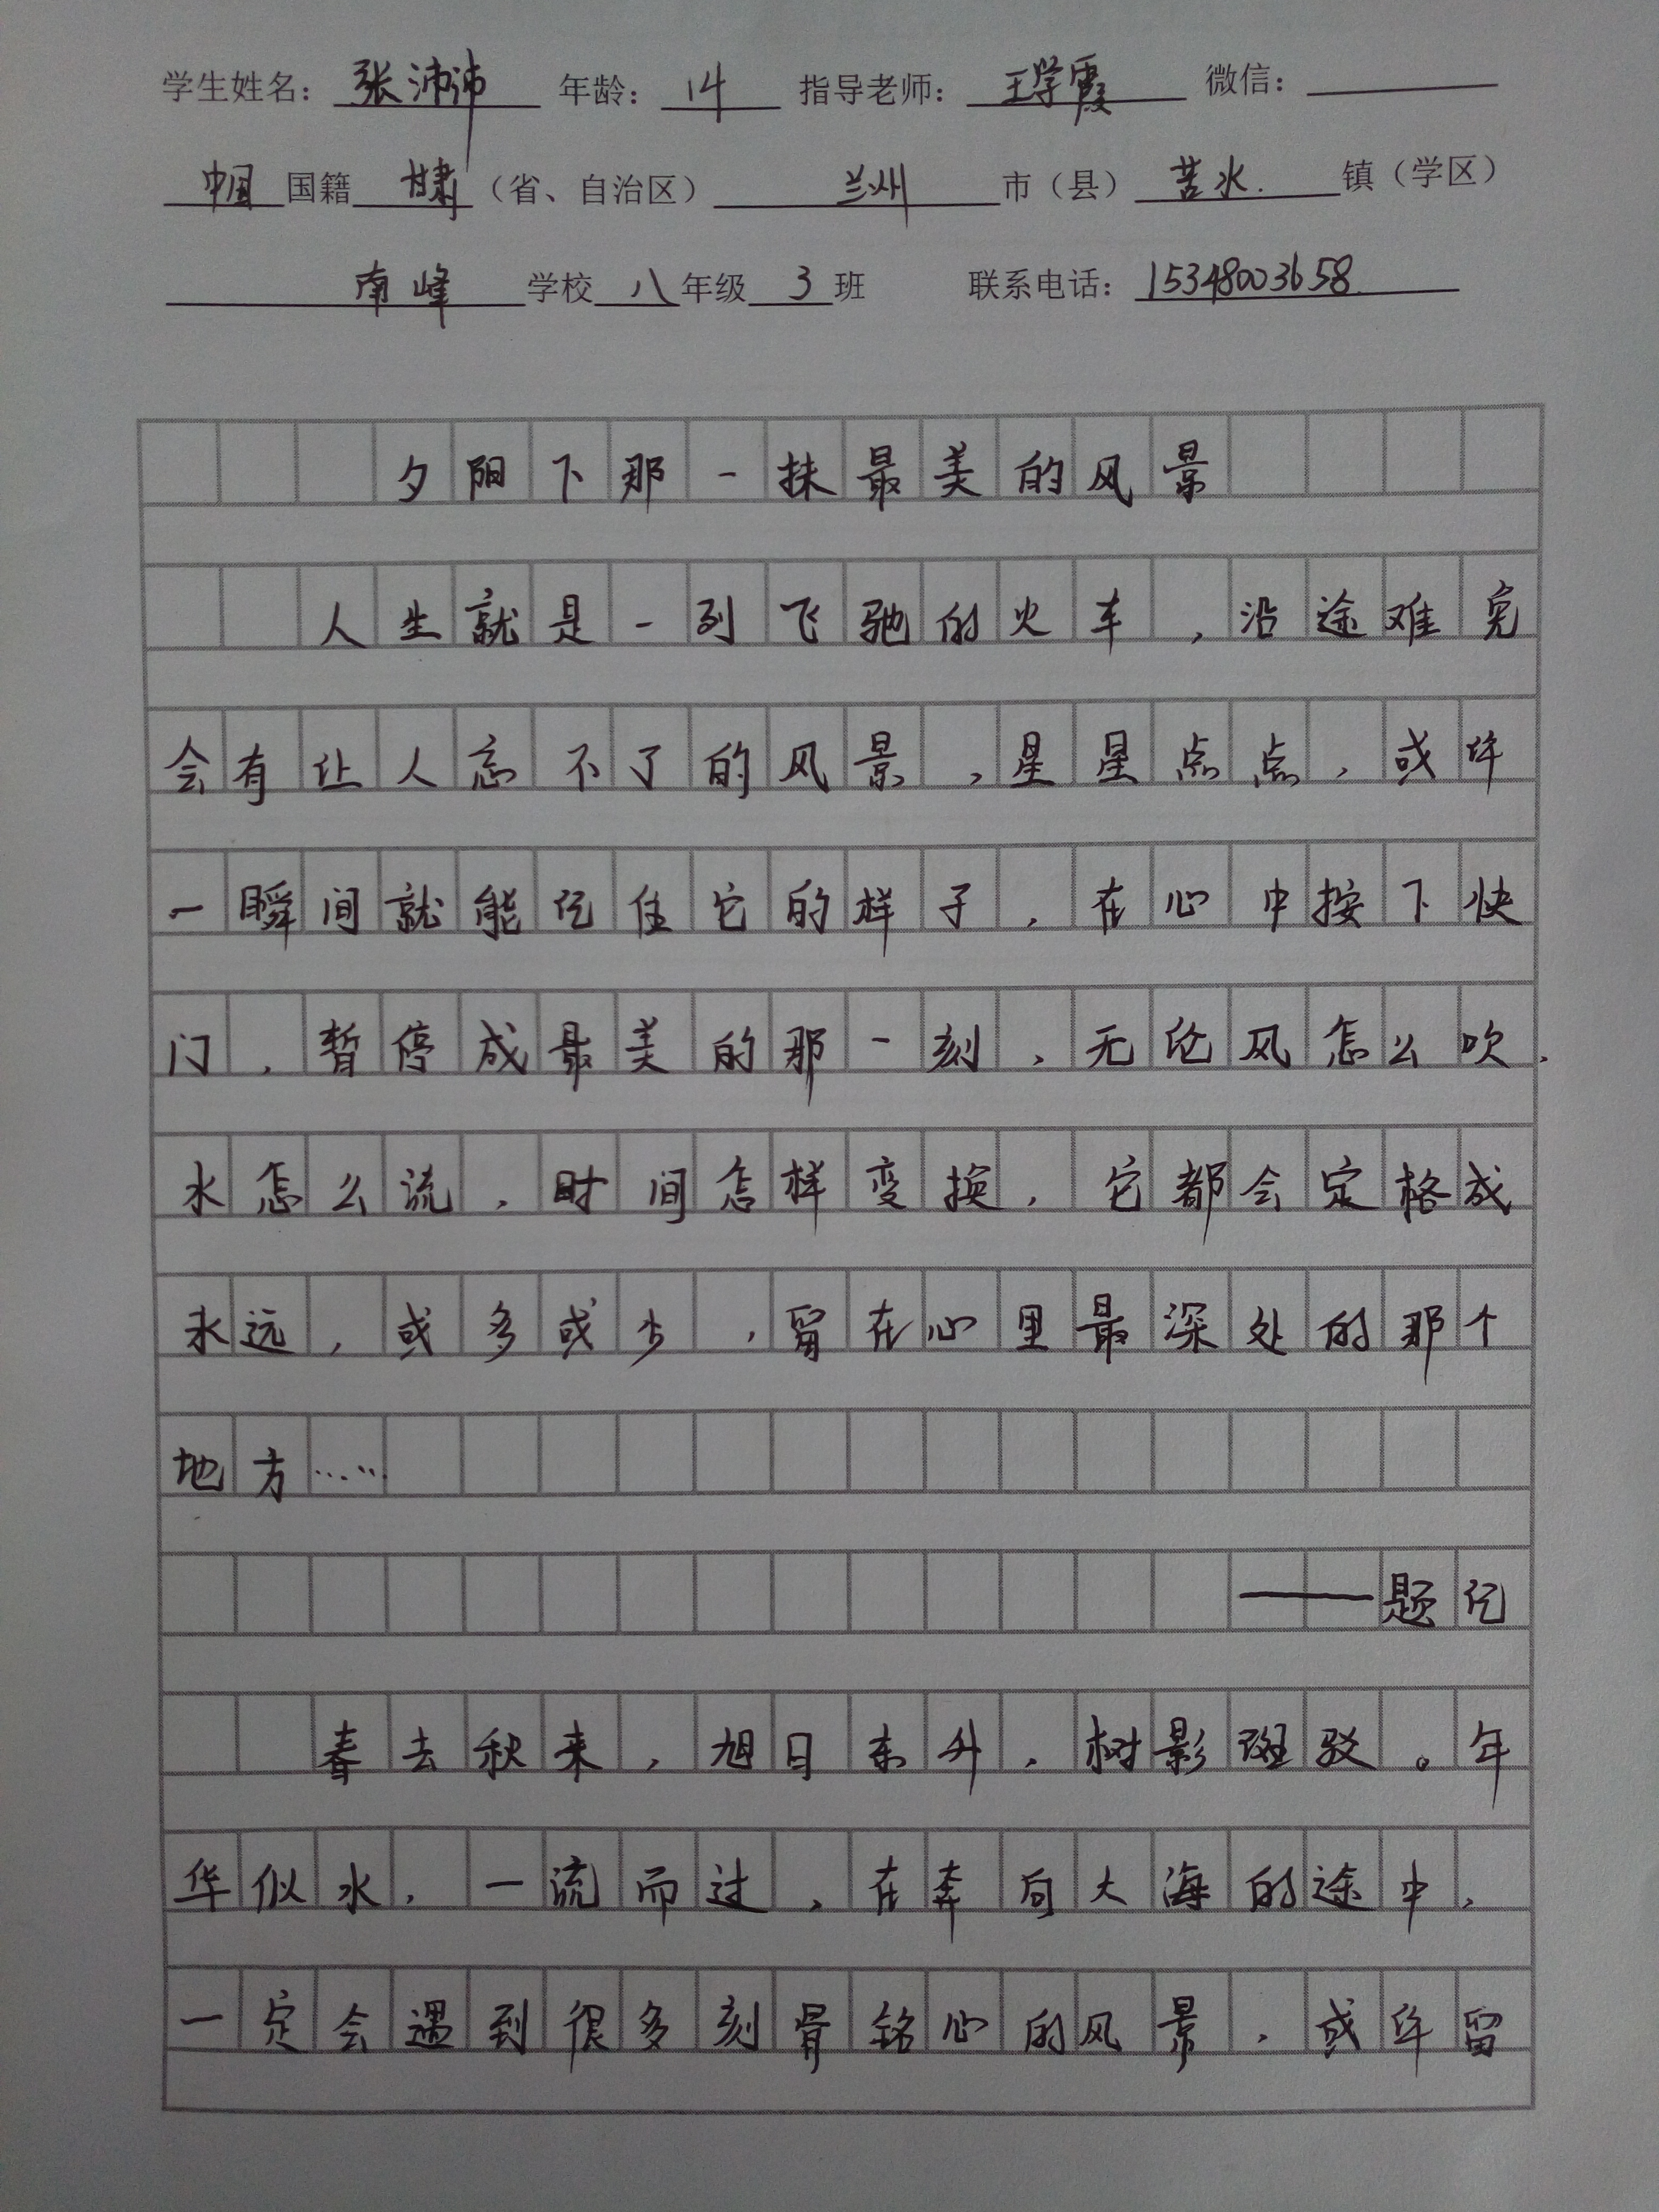 学生姓名：张沛沛 年龄：14 指导老师：王学霞 微信：
中国国籍甘肃（省、自治区）兰州市（县）苦水镇（学区）
南峰学校八年级3班 联系电话：15348003658
夕阳下那一抹最美的风景
人生就是一列飞驰的火车，沿途难免
会有让人忘不了的风景，星星点点，或许
一瞬间就能记住它的样子，在心中按下快
门，暂停成最美的那一刻，无论风怎么吹，
水怎么流，时间怎样变换，它都会定格成
永远，或多或少，留在心里最深处的那个
地方……
——题记
春去秋来，旭日东升，树影斑驳。年
华似水，一流而过，在奔向大海的途中，
一定会遇到很多刻骨铭心的风景，或许留